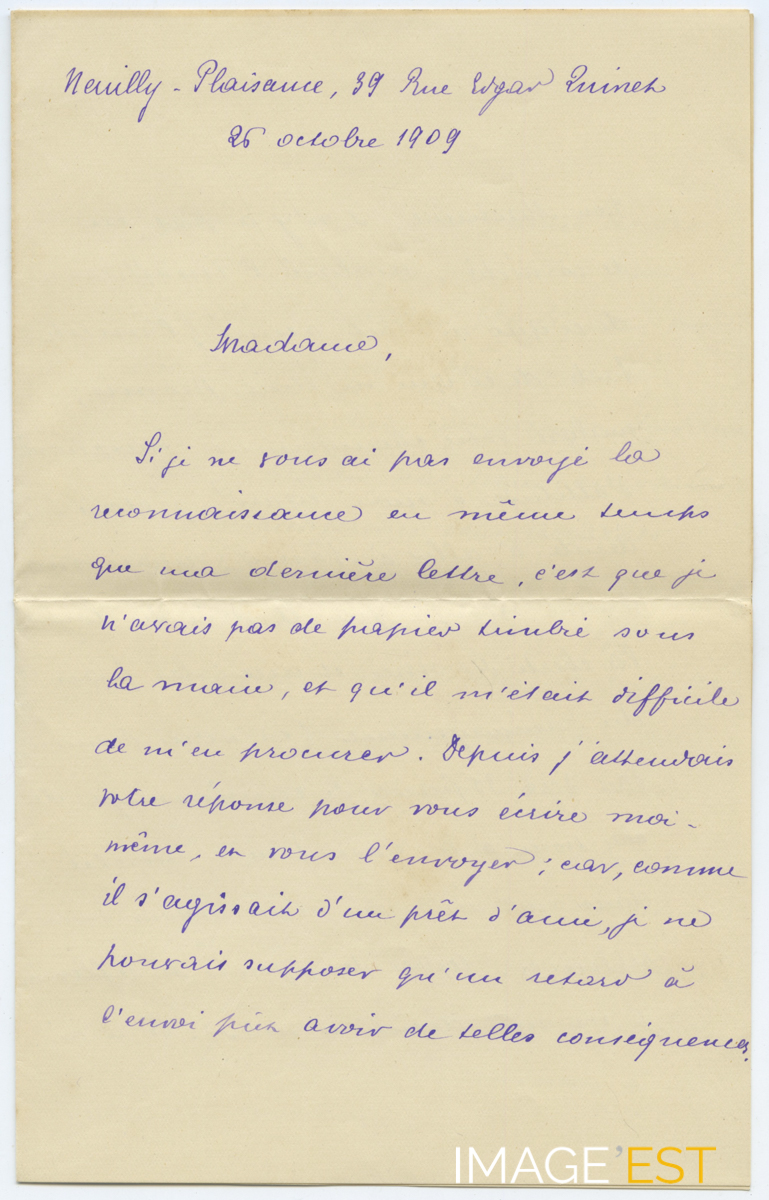 Neuilly-Plaisance, 39 Rue Edgar Quinet
26 octobre 1909
Madame,
Si je ne vous ai pas envoyé la
reconnaissance en même temps
que ma dernière lettre, c'est que je
n'avais pas de papier timbré sous
la main, et qu'il m'était difficile
de m'en procurer. Depuis j'attendais
votre réponse pour vous écrire moi-
même, et vous l'envoyer ; car, comme
il s'agissait d'un prêt d'ami, je ne
pouvais supposer qu'un retard à
l'envoi pût avoir de telles conséquences.
IMAGE'EST